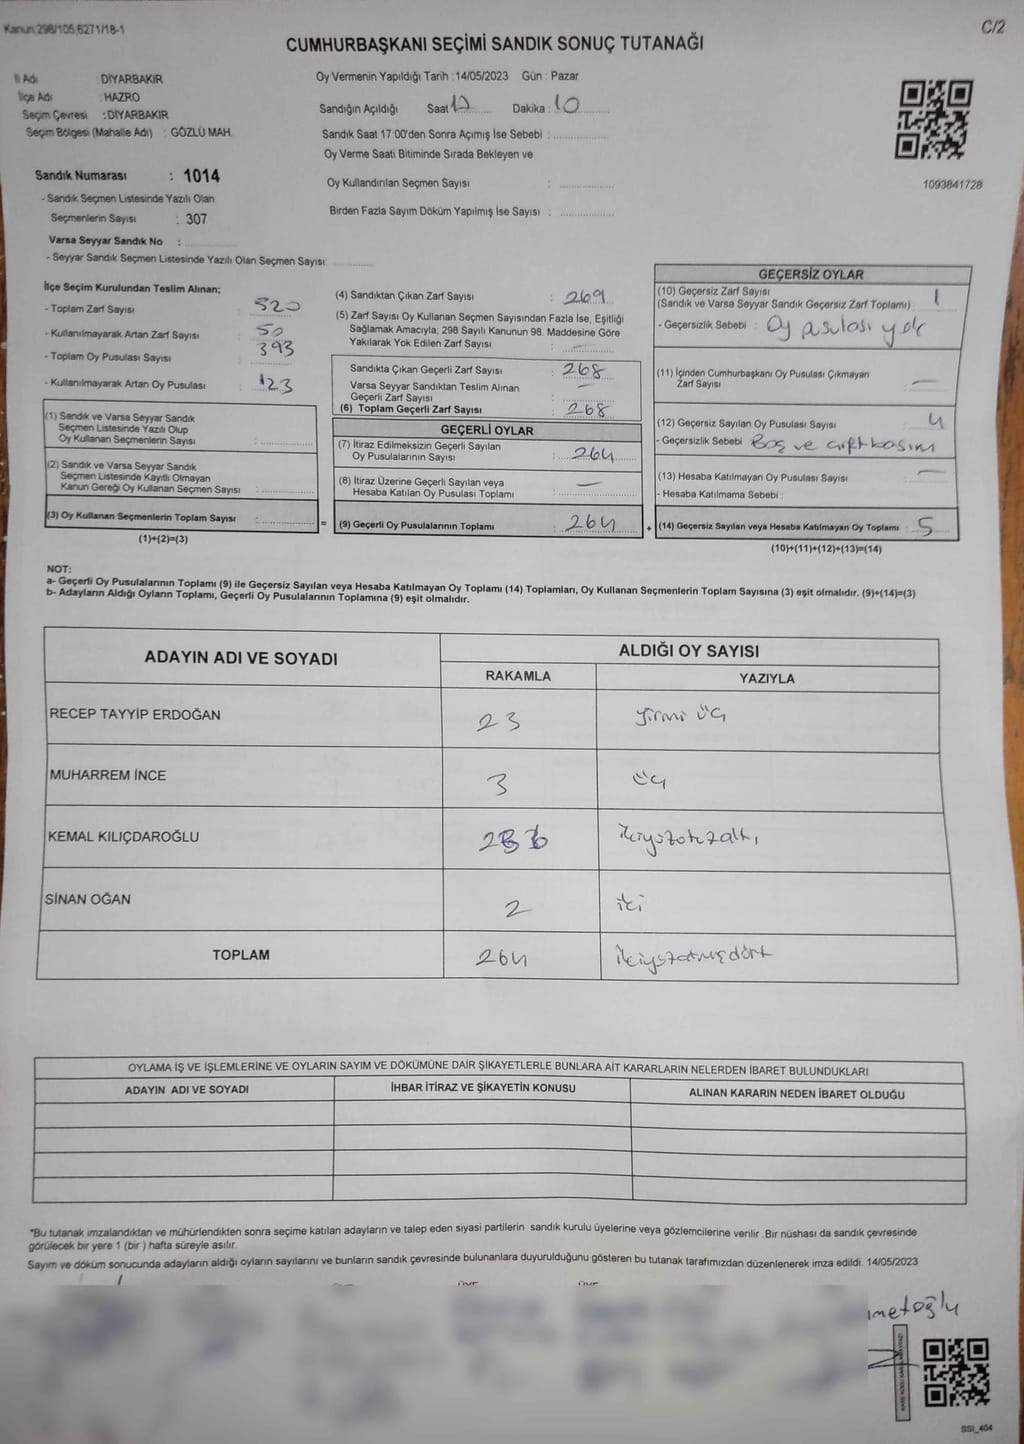 Kanun:298/105,6271/18-1
C/2
CUMHURBAŞKANI SEÇİMİ SANDIK SONUÇ TUTANAĞI
İl Adı : DİYARBAKIR
İlçe Adı : HAZRO
Seçim Çevresi : DİYARBAKIR
Seçim Bölgesi (Mahalle Adı) : GÖZLÜ MAH.
Sandık Numarası : 1014
- Sandık Seçmen Listesinde Yazılı Olan
Seçmenlerin Sayısı : 307
Varsa Seyyar Sandık No :
- Seyyar Sandık Seçmen Listesinde Yazılı Olan Seçmen Sayısı:
Oy Vermenin Yapıldığı Tarih : 14/05/2023 Gün : Pazar
Sandığın Açıldığı Saat 17 Dakika : 10
Sandık Saat 17:00'den Sonra Açımış İse Sebebi :
Oy Verme Saati Bitiminde Sırada Bekleyen ve
Oy Kullandırılan Seçmen Sayısı :
Birden Fazla Sayım Döküm Yapılmış İse Sayısı :
1093841728
İlçe Seçim Kurulundan Teslim Alınan;
- Toplam Zarf Sayısı : 320
- Kullanılmayarak Artan Zarf Sayısı : 50
- Toplam Oy Pusulası Sayısı : 393
- Kullanılmayarak Artan Oy Pusulası : 123
(1) Sandık ve Varsa Seyyar Sandık
Seçmen Listesinde Yazılı Olup
Oy Kullanan Seçmenlerin Sayısı :
(2) Sandık ve Varsa Seyyar Sandık
Seçmen Listesinde Kayıtlı Olmayan
Kanun Gereği Oy Kullanan Seçmen Sayısı :
(3) Oy Kullanan Seçmenlerin Toplam Sayısı : =
(1)+(2)=(3)
(4) Sandıktan Çıkan Zarf Sayısı : 269
(5) Zarf Sayısı Oy Kullanan Seçmen Sayısından Fazla İse, Eşitliği
Sağlamak Amacıyla; 298 Sayılı Kanunun 98. Maddesine Göre
Yakılarak Yok Edilen Zarf Sayısı : —
Sandıkta Çıkan Geçerli Zarf Sayısı : 268
Varsa Seyyar Sandıktan Teslim Alınan —
Geçerli Zarf Sayısı :
(6) Toplam Geçerli Zarf Sayısı : 268
GEÇERLİ OYLAR
(7) İtiraz Edilmeksizin Geçerli Sayılan
Oy Pusulalarının Sayısı : 264
(8) İtiraz Üzerine Geçerli Sayılan veya —
Hesaba Katılan Oy Pusulası Toplamı :
(9) Geçerli Oy Pusulalarının Toplamı : 264 +
GEÇERSİZ OYLAR
(10) Geçersiz Zarf Sayısı
(Sandık ve Varsa Seyyar Sandık Geçersiz Zarf Toplamı) : 1
- Geçersizlik Sebebi : Oy pusulası yok
(11) İçinden Cumhurbaşkanı Oy Pusulası Çıkmayan
Zarf Sayısı : —
(12) Geçersiz Sayılan Oy Pusulası Sayısı : 4
- Geçersizlik Sebebi : Boş ve çift basım
(13) Hesaba Katılmayan Oy Pusulası Sayısı : —
- Hesaba Katılmama Sebebi :
(14) Geçersiz Sayılan veya Hesaba Katılmayan Oy Toplamı : 5
(10)+(11)+(12)+(13)=(14)
NOT:
a- Geçerli Oy Pusulalarının Toplamı (9) ile Geçersiz Sayılan veya Hesaba Katılmayan Oy Toplamı (14) Toplamları, Oy Kullanan Seçmenlerin Toplam Sayısına (3) eşit olmalıdır. (9)+(14)=(3)
b- Adayların Aldığı Oyların Toplamı, Geçerli Oy Pusulalarının Toplamına (9) eşit olmalıdır.
ADAYIN ADI VE SOYADI
ALDIĞI OY SAYISI
RAKAMLA YAZIYLA
RECEP TAYYİP ERDOĞAN 23 yirmi üç
MUHARREM İNCE 3 üç
KEMAL KILIÇDAROĞLU 236 ikiyüzotuzaltı
SİNAN OĞAN 2 iki
TOPLAM 264 ikiyüzatmışdört
OYLAMA İŞ VE İŞLEMLERİNE VE OYLARIN SAYIM VE DÖKÜMÜNE DAİR ŞİKAYETLERLE BUNLARA AİT KARARLARIN NELERDEN İBARET BULUNDUKLARI
ADAYIN ADI VE SOYADI İHBAR İTİRAZ VE ŞİKAYETİN KONUSU ALINAN KARARIN NEDEN İBARET OLDUĞU
"Bu tutanak imzalandıktan ve mühürlendikten sonra seçime katılan adayların ve talep eden siyasi partilerin sandık kurulu üyelerine veya gözlemcilerine verilir .Bir nüshası da sandık çevresinde
görülecek bir yere 1 (bir ) hafta süreyle asılır.
Sayım ve döküm sonucunda adayların aldığı oyların sayılarını ve bunların sandık çevresinde bulunanlara duyurulduğunu gösteren bu tutanak tarafımızdan düzenlenerek imza edildi. 14/05/2023
metoğlu
SSI_404